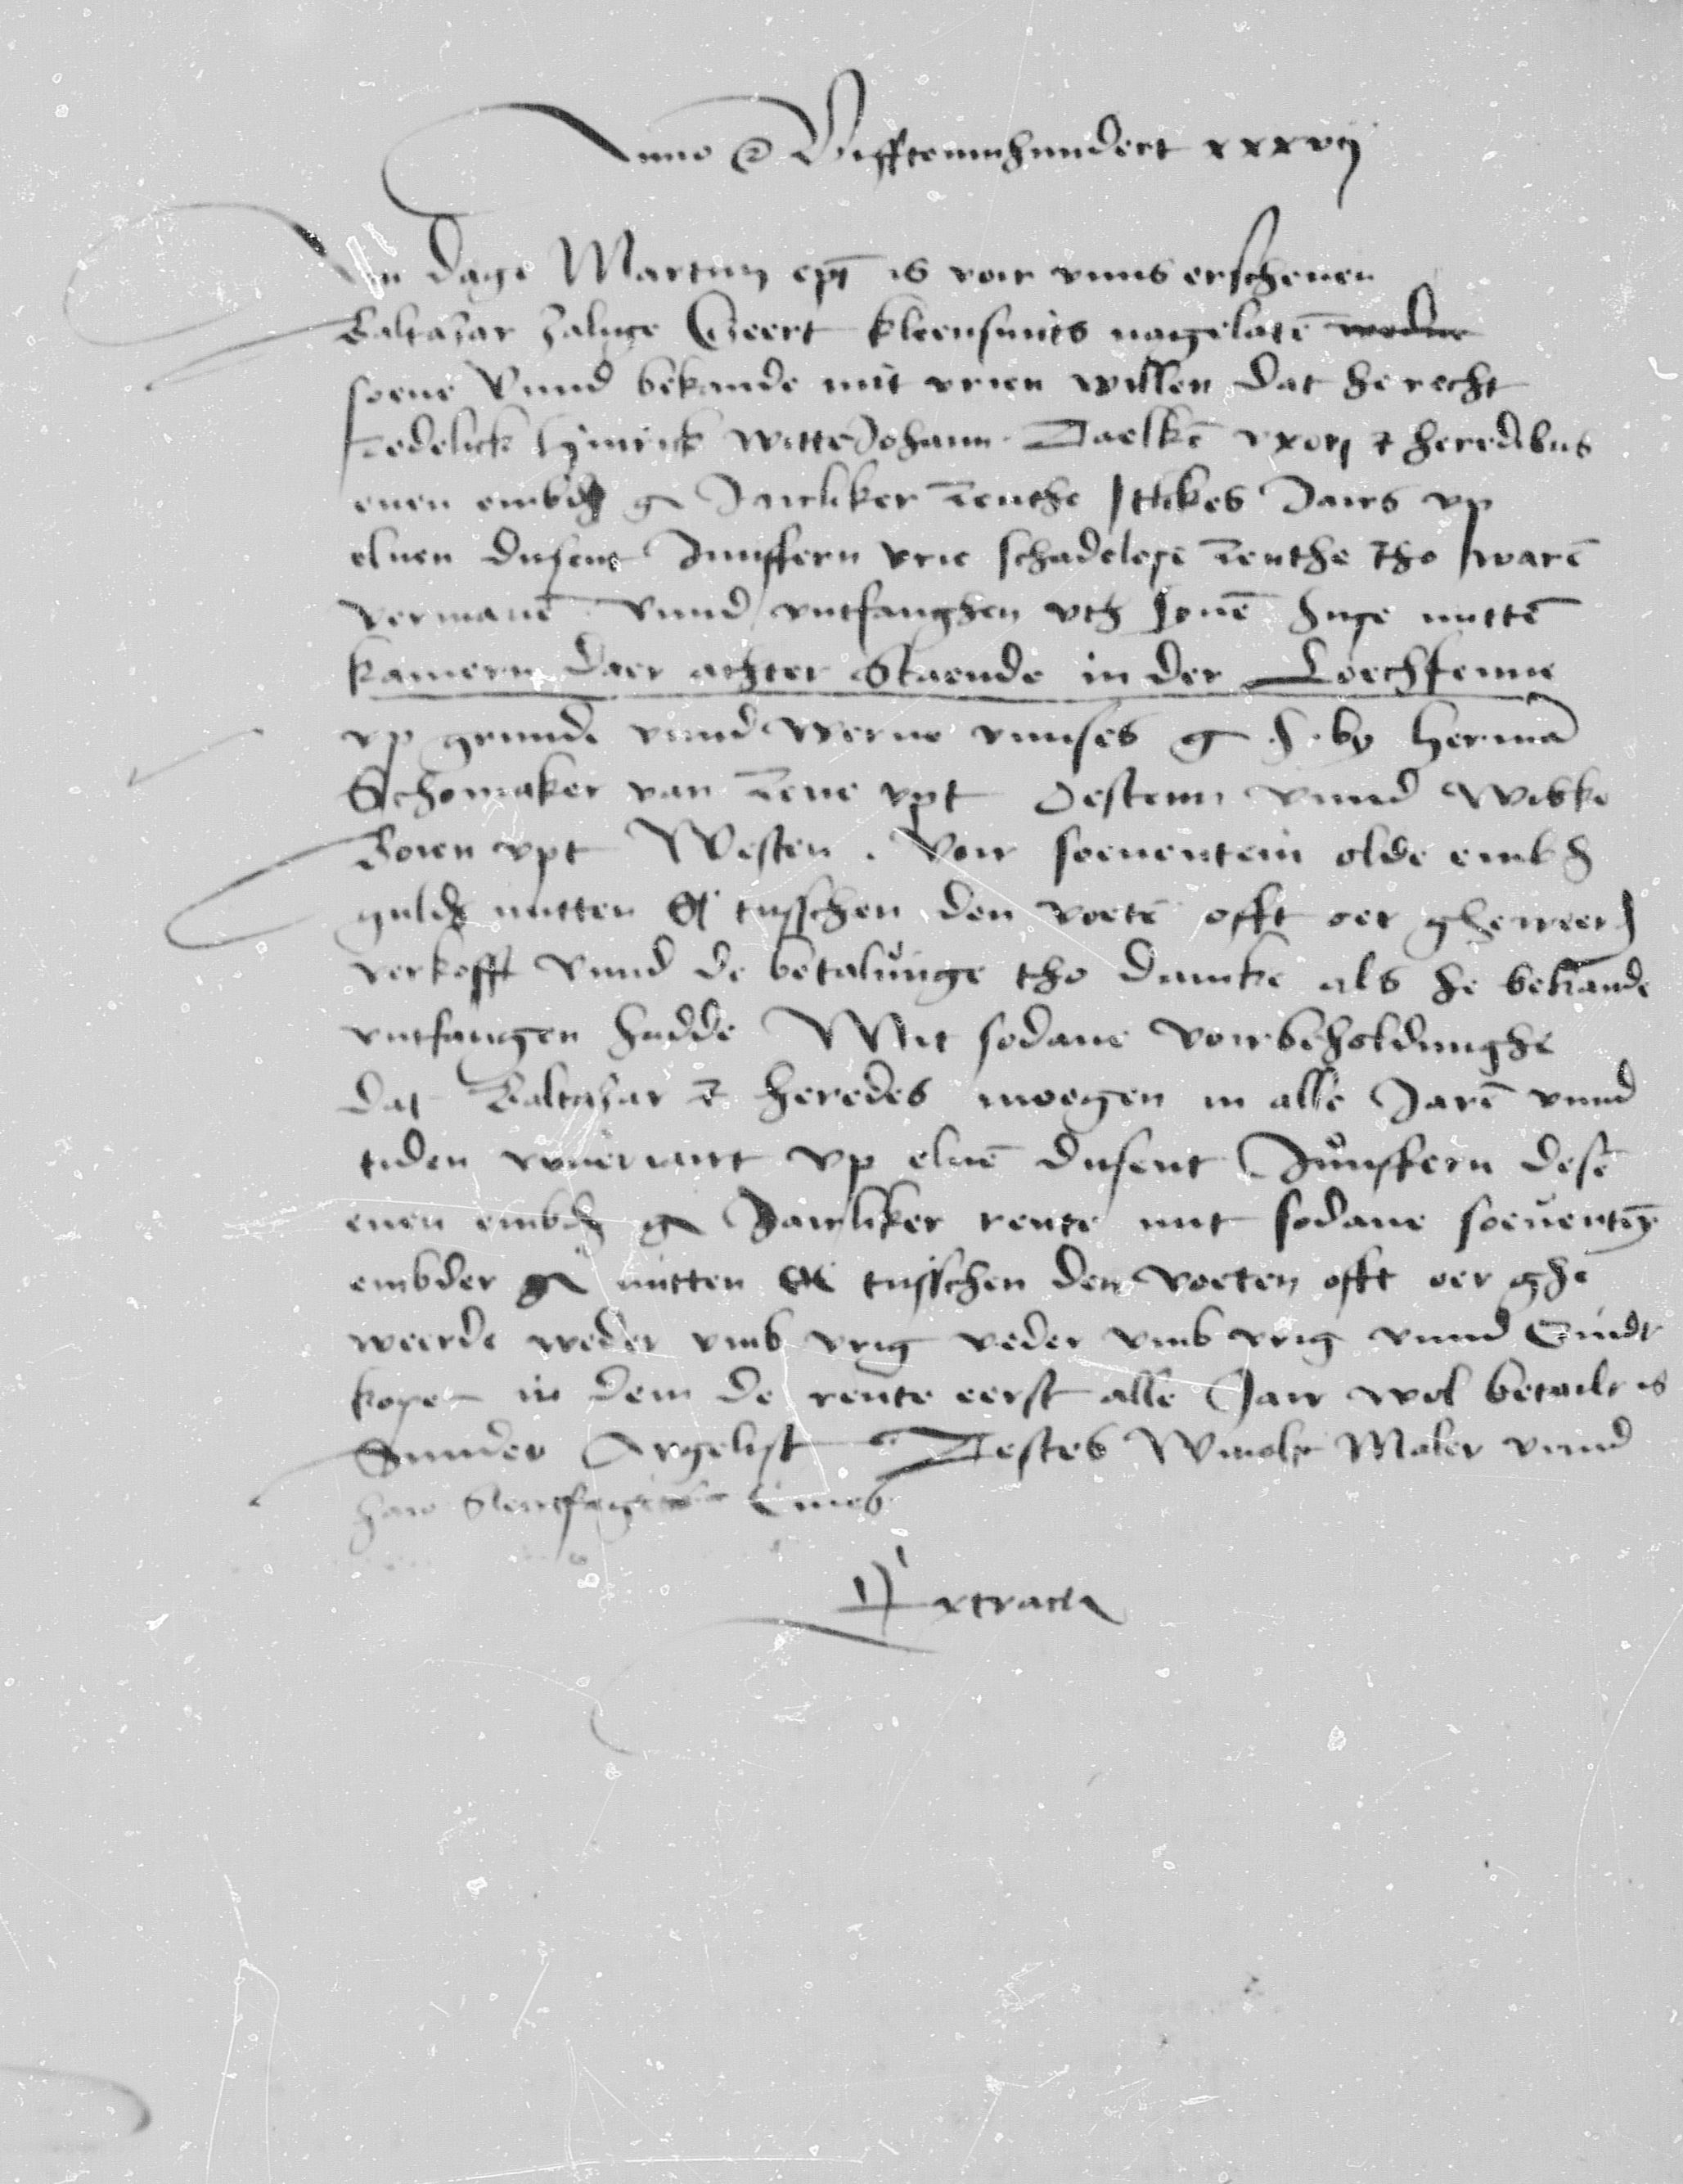 Anno &c Vifftennhundert xxxvij
Am dage Martinj epī is voir vnns erschenen
Baltasar zalige Geert kleensmits nagelatē wedue
soene Vnnd bekande mit vrien willen dat he recht
redelick Hinrick witte Johann Taelkē vxorj & heredibus
enen embdr gl Jairliker Renthe Itlikes Jairs vp
eluen dusent Junffern vrie schadelose Renthe tho warē
vermanē vnnd vntfanghen vth synē huse mitten
kamern daer achter Staende in der Loechfenne
vp grunde vnnd Werue vnnses g h by Hermā
Schomaker van Rene vpt Oestenn vnnd Wibke
Boien vpt Westen . Voir soeuentein olde embd
guldē mitten & tusschen den voetē offt oer gheweerd
verkofft Vnnd de betalunge tho dancke als he bekande
vntfangen hadde Mit sodane voirbeholdunghe
dat Baltasar & heredes moegen in alle Jarē vnnd
tiden vp eluē dusent Junffern desē
enen embdr gl Jairliker rente mit sodane soeuenteȳ
embder gl mitten & tusschen den voeten offt oer ghe
weerde weder vmb vrig weder vmb vrig vnnd Quidt
kopen in dem de rente eerst alle Jair wol betailt is
Sunder Argelist Testes Maler vnnd
Ciues
Extracta